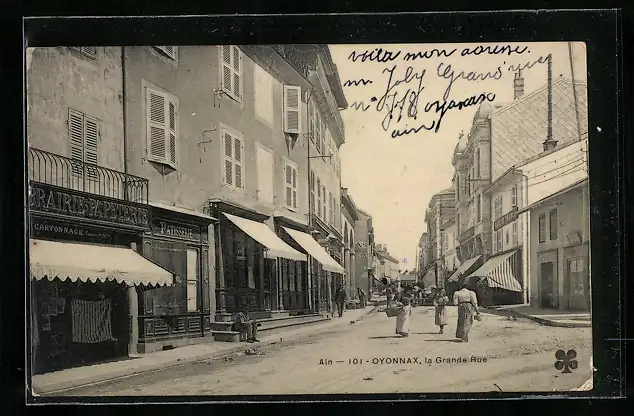 voila mon adresse.
mr Joly Grand rue
Oyonnax
ain
BRAIRIE-PAPETERIE
CARTONNAGE
PATISSERIE
Ain — 101 - OYONNAX, la Grande Rue